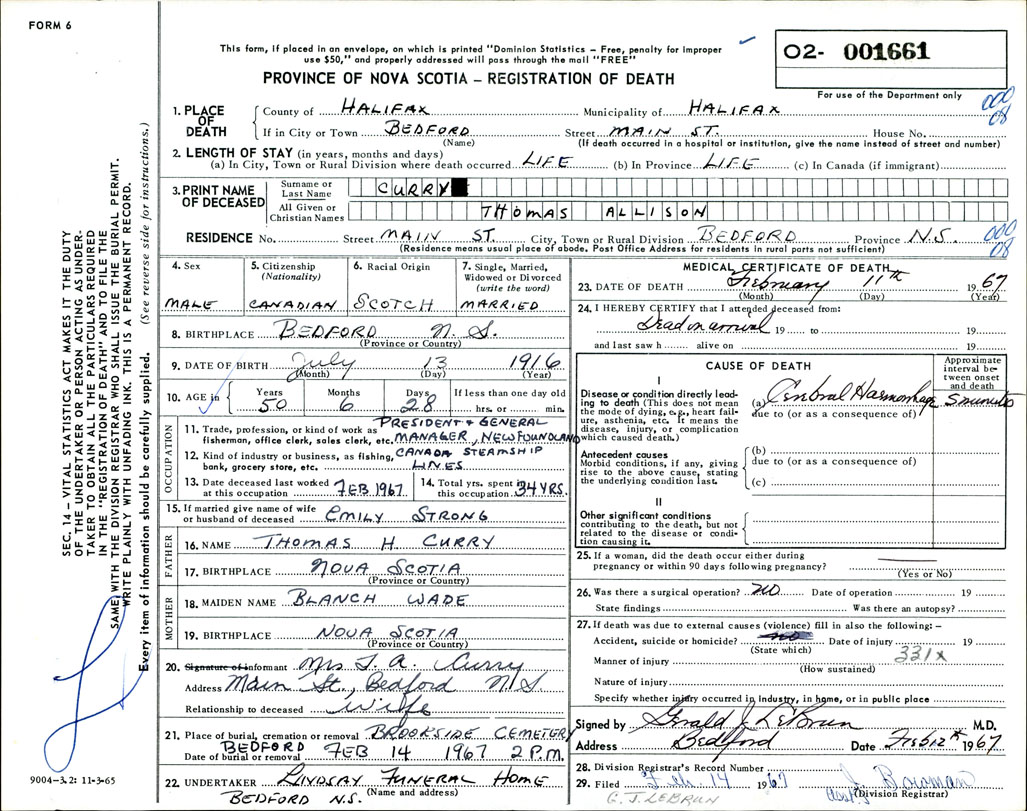 FORM 6
This form, if placed in an envelope, on which is printed "Dominion Statistics – Free, penalty for improper
use $50," and properly addressed will pass through the mail "FREE"
O2- 001661
For use of the Department only
PROVINCE OF NOVA SCOTIA – REGISTRATION OF DEATH
000
08
1. PLACE OF DEATH
County of HALIFAX Municipality of HALIFAX
If in City or Town BEDFORD Street MAIN ST. House No.
(Name) (If death occurred in a hospital or institution, give the name instead of street and number)
2. LENGTH OF STAY (in years, months and days)
(a) In City, Town or Rural Division where death occurred LIFE (b) In Province LIFE (c) In Canada (if immigrant)
3. PRINT NAME OF DECEASED
Surname or Last Name CURRY
All Given or Christian Names THOMAS ALLISON
RESIDENCE No. Street MAIN ST. City, Town or Rural Division BEDFORD Province N.S.
000
08
(Residence means usual place of abode. Post Office Address for residents in rural parts not sufficient)
4. Sex MALE
5. Citizenship (Nationality) CANADIAN
6. Racial Origin SCOTCH
7. Single, Married, Widowed or Divorced (write the word) MARRIED
8. BIRTHPLACE BEDFORD N.S.
(Province or Country)
9. DATE OF BIRTH July 13 1916
(Month) (Day) (Year)
10. AGE in Years 50 Months 6 Days 28 If less than one day old hrs. or min.
OCCUPATION
11. Trade, profession, or kind of work as fisherman, office clerk, sales clerk, etc. PRESIDENT & GENERAL MANAGER, NEWFOUNDLAND
12. Kind of industry or business, as fishing, bank, grocery store, etc. CANADA STEAMSHIP LINES
13. Date deceased last worked at this occupation FEB 1967
14. Total yrs. spent in this occupation 34 YRS.
15. If married give name of wife or husband of deceased EMILY STRONG
FATHER
16. NAME THOMAS H CURRY
17. BIRTHPLACE NOVA SCOTIA
(Province or Country)
MOTHER
18. MAIDEN NAME BLANCH WADE
19. BIRTHPLACE NOVA SCOTIA
(Province or Country)
20. Signature of informant Mrs T. A. Curry
Address Main St., Bedford N.S.
Relationship to deceased Wife
21. Place of burial, cremation or removal BROOKSIDE CEMETERY
BEDFORD
Date of burial or removal FEB 14 1967 2 P.M.
22. UNDERTAKER LINDSAY FUNERAL HOME
(Name and address)
BEDFORD N.S.
MEDICAL CERTIFICATE OF DEATH
23. DATE OF DEATH February 11th 1967
(Month) (Day) (Year)
24. I HEREBY CERTIFY that I attended deceased from:
Dead on arrival 19 to 19
and last saw h alive on 19
CAUSE OF DEATH
Approximate interval between onset and death
I
Disease or condition directly leading to death (This does not mean the mode of dying, e.g., heart failure, asthenia, etc. It means the disease, injury, or complication which caused death.)
(a) Cerebral Haemorrhage 5 minutes
due to (or as a consequence of)
Antecedent causes
Morbid conditions, if any, giving rise to the above cause, stating the underlying condition last.
(b)
due to (or as a consequence of)
(c)
II
Other significant conditions
contributing to the death, but not related to the disease or condition causing it.
25. If a woman, did the death occur either during
pregnancy or within 90 days following pregnancy?
(Yes or No)
26. Was there a surgical operation? no Date of operation 19
State findings Was there an autopsy?
27. If death was due to external causes (violence) fill in also the following:–
Accident, suicide or homicide? Date of injury 19
(State which)
331x
Manner of injury
(How sustained)
Nature of injury
Specify whether injury occurred in industry, in home, or in public place
Signed by Gerald J. LeBrun M.D.
Address Bedford Date Feb 12th 1967
28. Division Registrar's Record Number
29. Filed Feb 14 1967 J. Bowman
(Division Registrar)
G. J. LEBRUN
SEC. 14 – VITAL STATISTICS ACT MAKES IT THE DUTY
OF THE UNDERTAKER OR PERSON ACTING AS UNDER-
TAKER TO OBTAIN ALL THE PARTICULARS REQUIRED
IN THE "REGISTRATION OF DEATH" AND TO FILE THE
SAME WITH THE DIVISION REGISTRAR WHO SHALL ISSUE THE BURIAL PERMIT.
WRITE PLAINLY WITH UNFADING INK. THIS IS A PERMANENT RECORD.
Every item of information should be carefully supplied. (See reverse side for instructions.)
9004-3.2: 11-3-65